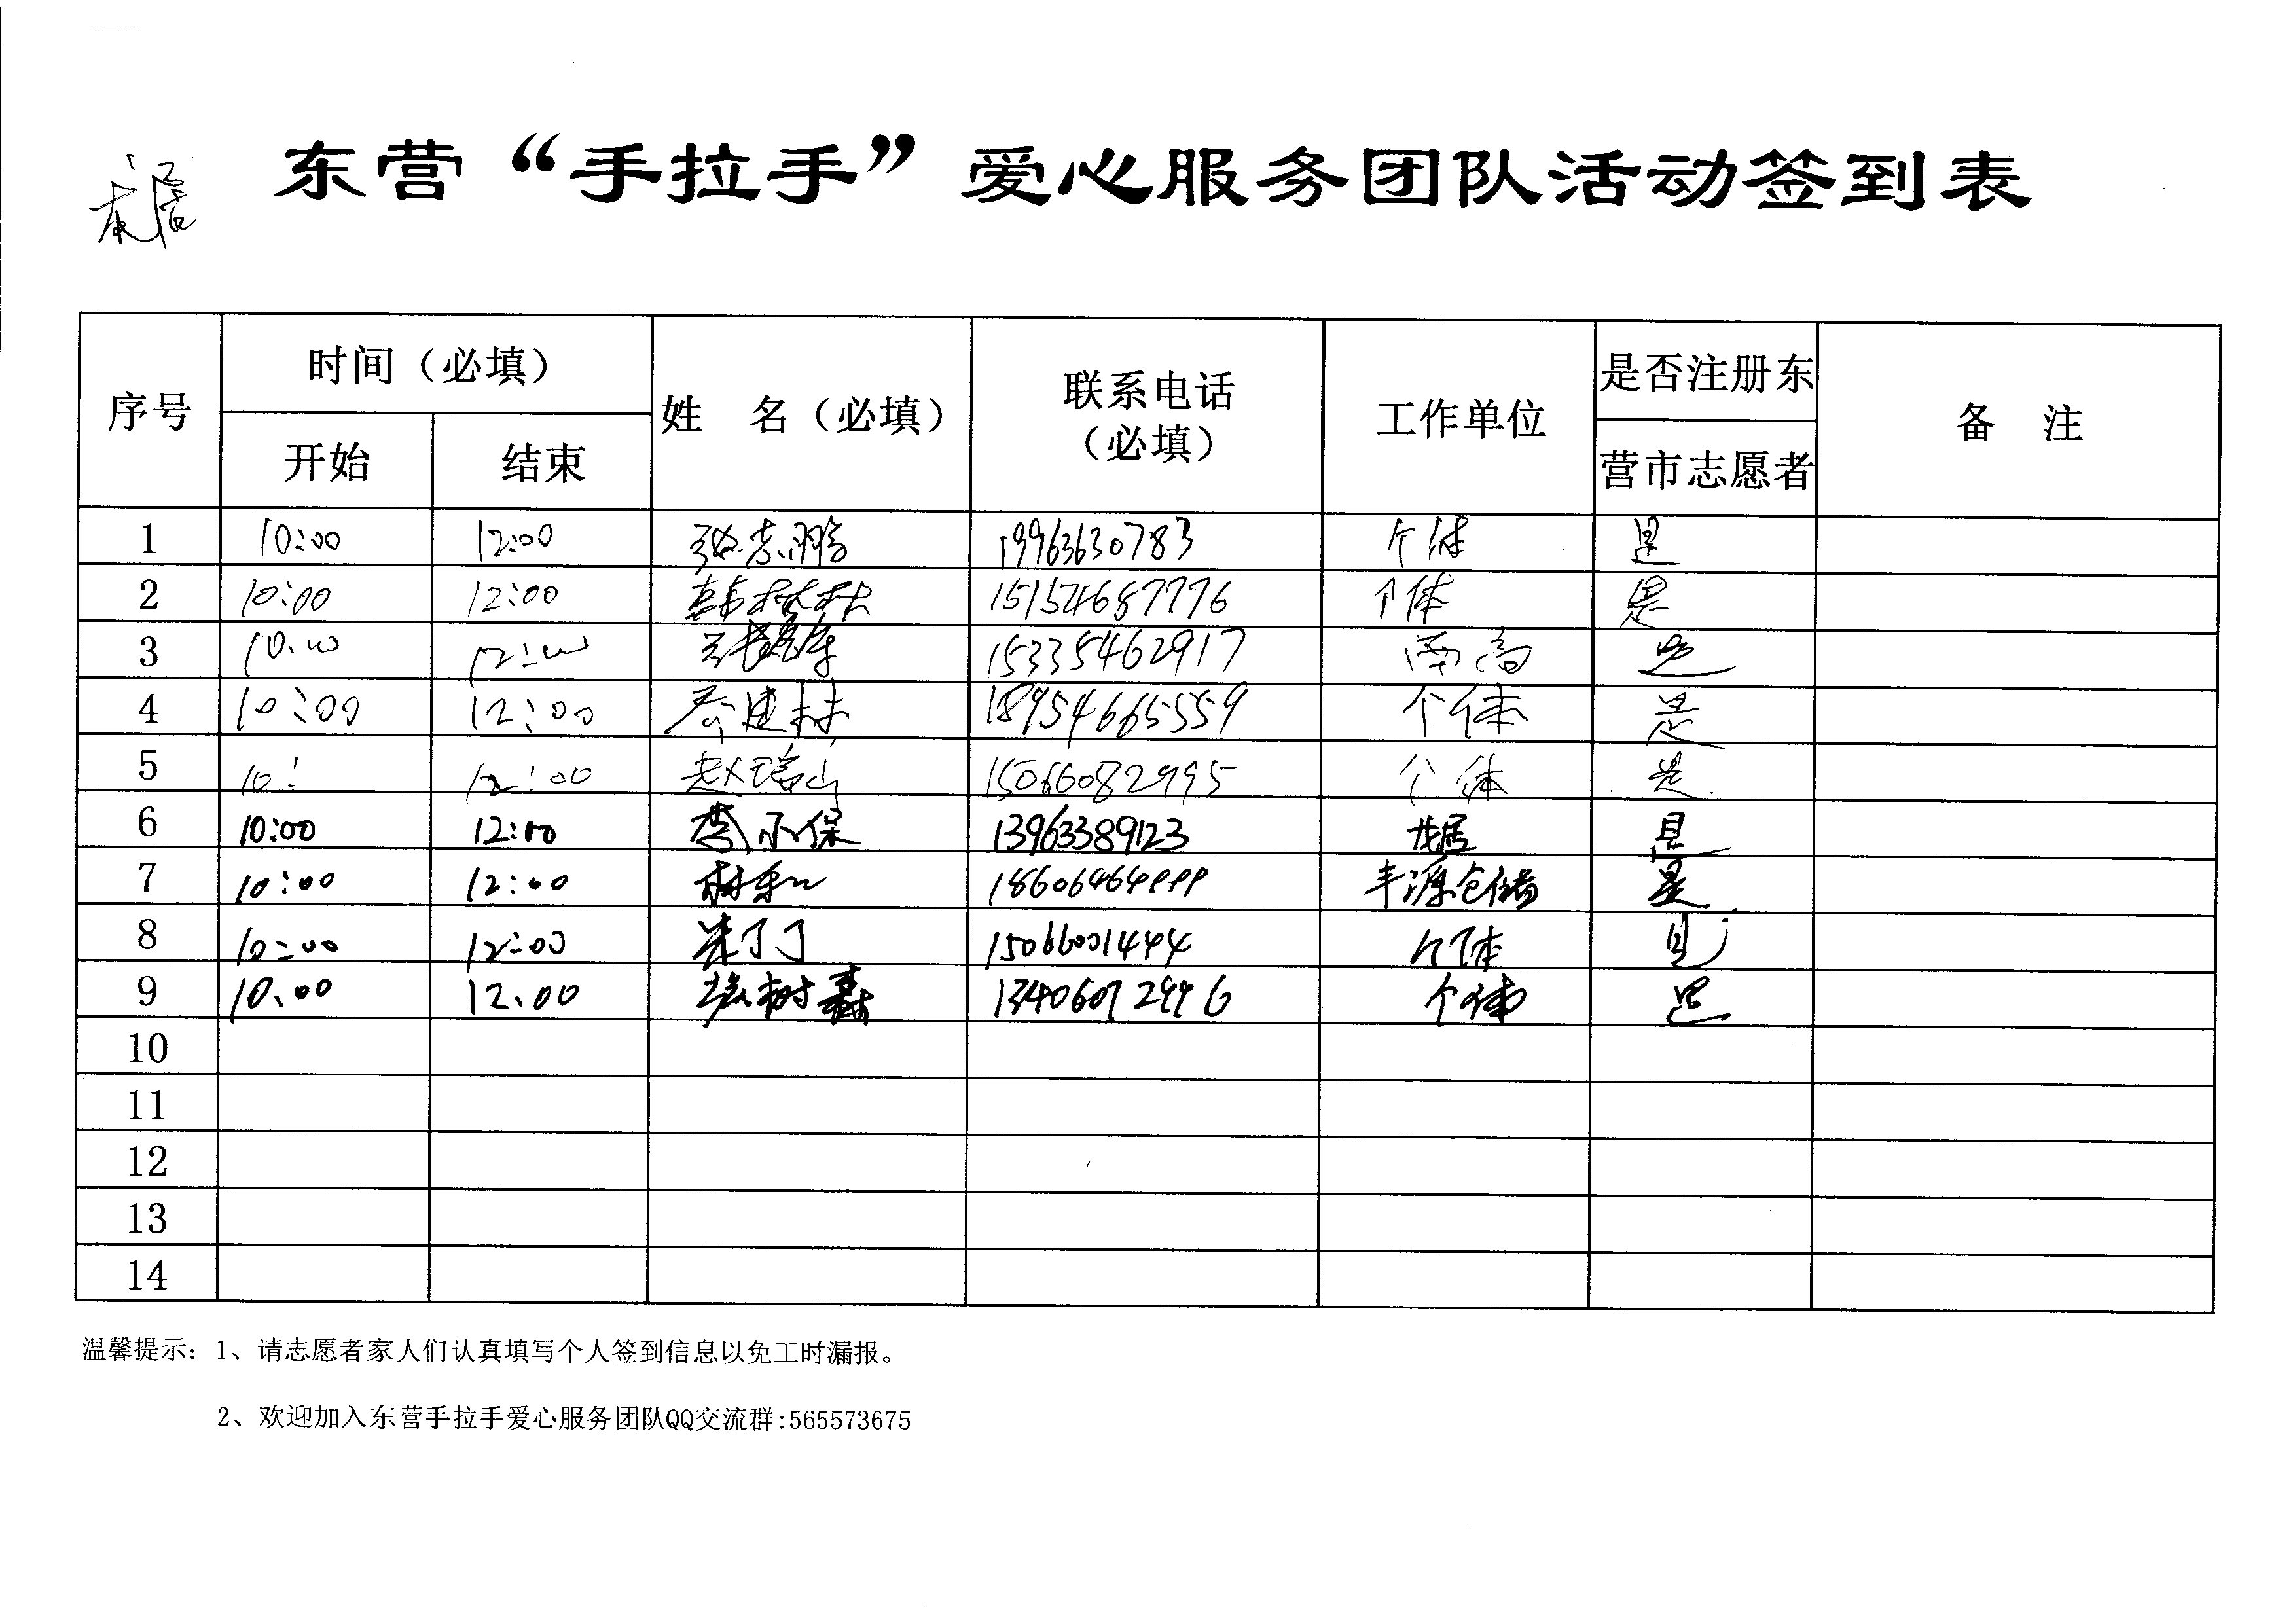 东营“手拉手”爱心服务团队活动签到表
序号 时间（必填） 姓 名（必填） 联系电话（必填） 工作单位 是否注册东营市志愿者 备 注
开始 结束
1 10:00 12:00 张志鹏 19963630783 个体 是
2 10:00 12:00 韩林林 15154687776 个体 是
3 10:00 12:00 15335462917 南高 是
4 10:00 12:00 乔建林 18954665559 个体 是
5 10: 12:00 赵瑞山 15066082995 个体 是
6 10:00 12:00 李永保 13963389123 龙居 是
7 10:00 12:00 丰源仓储 是
8 10:00 12:00 崔丁丁 15066001444 个体 是
9 10:00 12:00 张树森 个体 是
10
11
12
13
14
温馨提示：1、请志愿者家人们认真填写个人签到信息以免工时漏报。
2、欢迎加入东营手拉手爱心服务团队QQ交流群:565573675